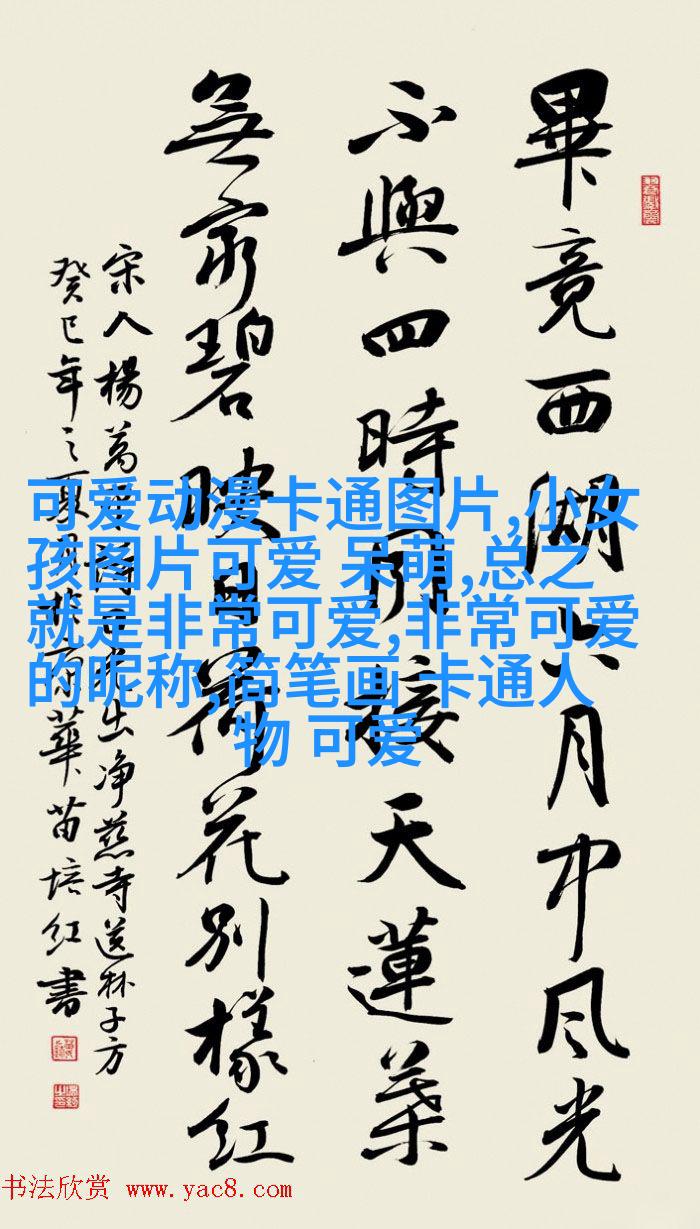 畢竟西湖六月中风光
不與四時同接天蓮葉
無穷碧映日荷花別樣红
宋人楊萬里詩曉出净慈寺送林子方
癸巳年之夏華苗培红書
可爱动漫卡通图片,小女
孩图片可爱 呆萌,总之
就是非常可爱,非常可爱
的昵称,简笔画 卡通人
物 可爱
书法欣赏 www.yac8.com